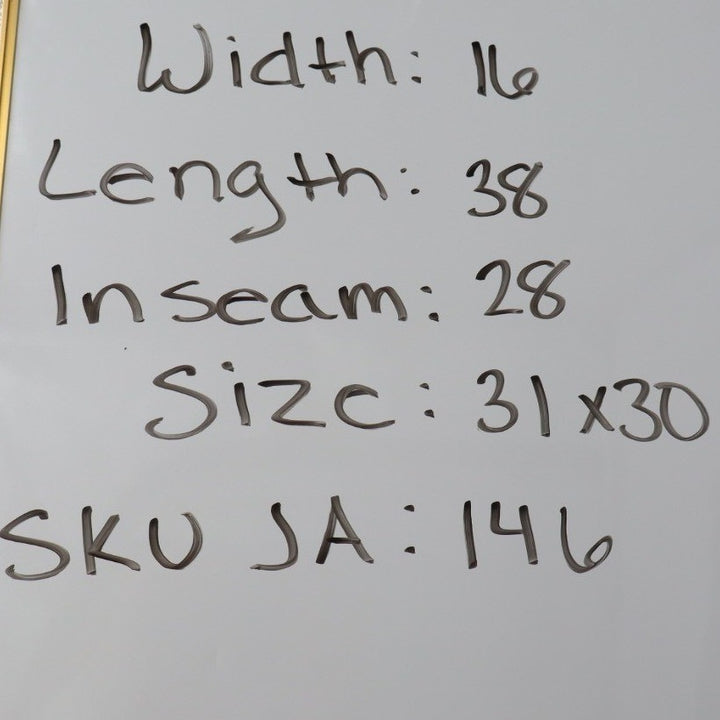 Width: 16
Length: 38
Inseam: 28
Size: 31x30
SKU JA: 146